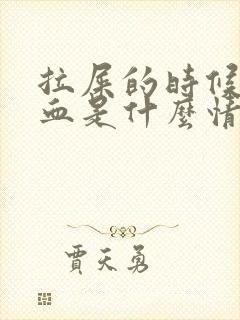 拉屎的時候
血是什麼情
賈天勇